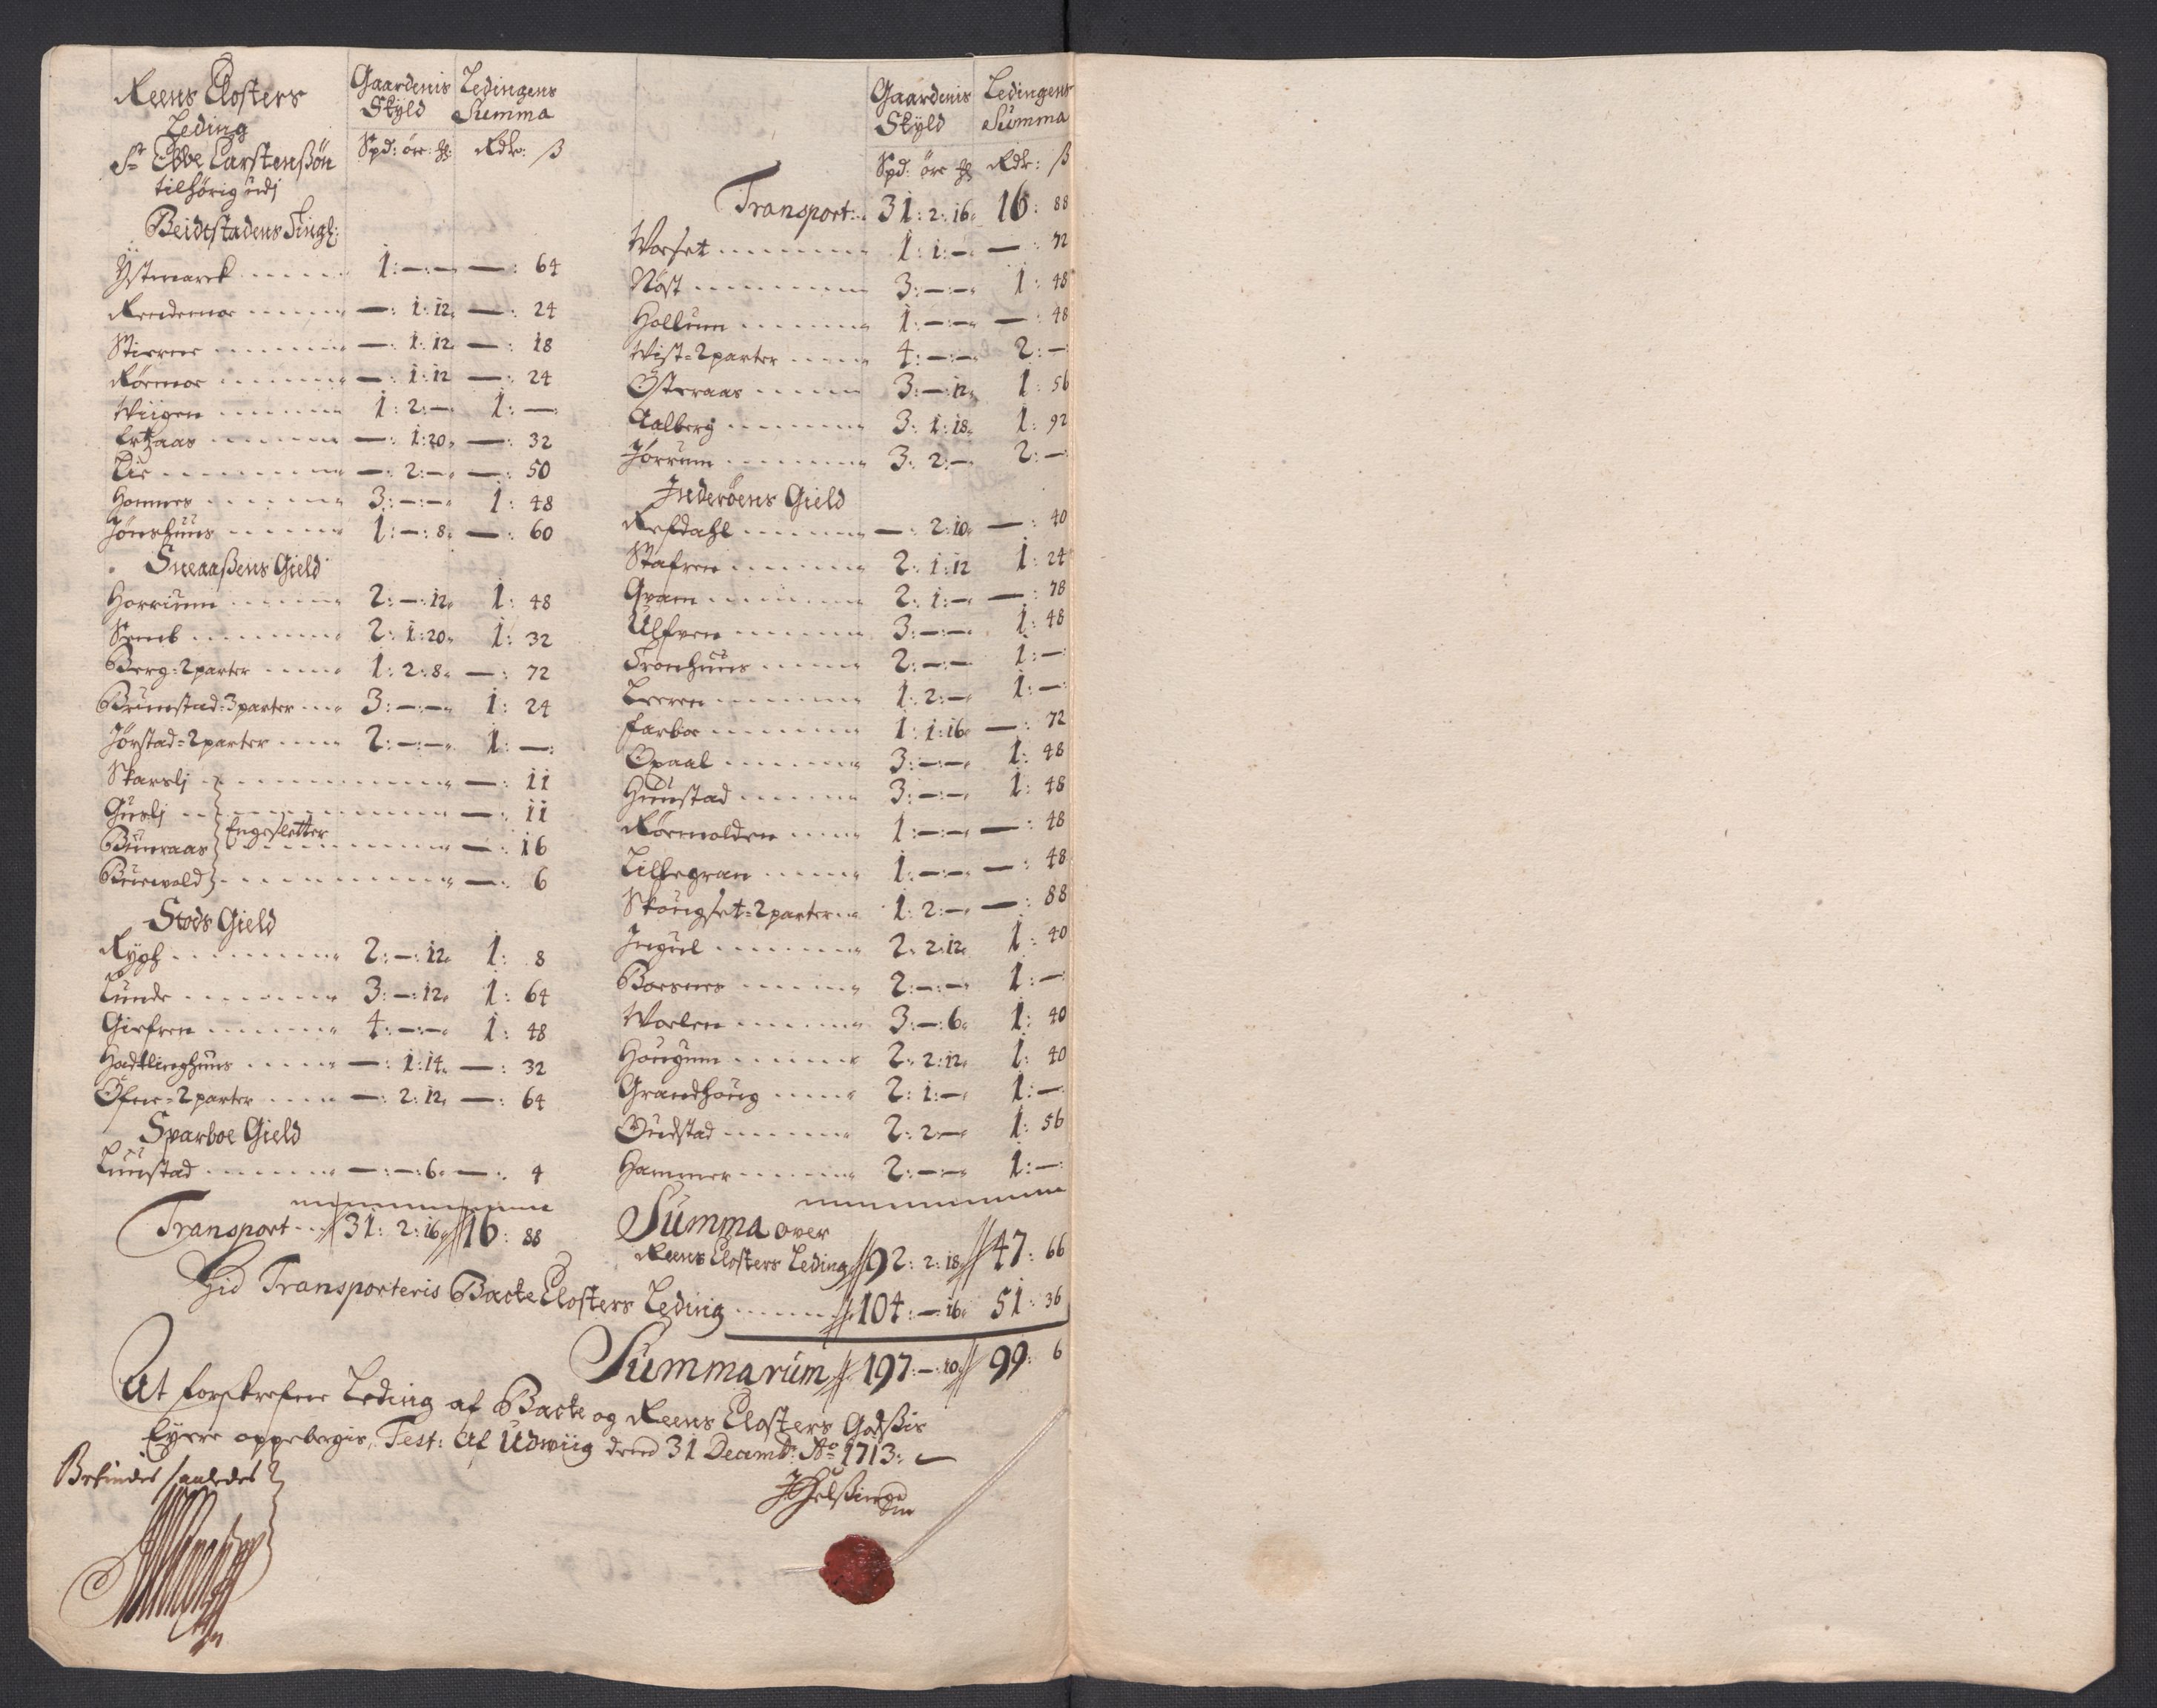 Reens Closters
Leding
Sr Ebbe Carstenßøn
tilhørig udj
Gaardenis Skyld
Ledingens Summa
Spd: öre: Mk: Rdlr: ß
Beidtstadens Tingl:
Ystmarck ...... 1:—:— —: 64
Rendemoe ...... —: 1: 12 —: 24
Stirrne ...... —: 1: 12 —: 18
Rörmoe ...... —: 1: 12 —: 24
Wiigen ...... 1: 2:— 1:—
...... —: 1: 20 —: 32
Lie ...... —: 2:— —: 50
Homnes ...... 3:—:— 1: 48
Jönshuus ...... 1:—: 8 —: 60
Sneaaßens Gield
Horrium ...... 2:—: 12 1: 48
Semb ...... 2: 1: 20 1: 32
Berg = 2 parter ...... 1: 2: 8 —: 72
Brunstad = 3 parter ... 3:—:— 1: 24
Jørstad = 2 parter ..... 2:—:— 1:—
Skarslj ...... —: 11
Guslj ...... —: 11
Engesletter
Bunraas ...... —: 16
...... —: 6
Stods Gield
Rygh ...... 2:—: 12 1: 8
Lunde ...... 3:—: 12 1: 64
Giefren ...... 4:—:— 1: 48
Hadklinghuus ..... —: 1: 14 —: 32
Öfne = 2 parter ..... —: 2: 12 —: 64
Sparboe Gield
Luustad ...... —:—: 6 —: 4
Transport ... 31: 2: 16 16: 88
Gaardenis Skyld
Ledingens Summa
Spd: öre Mk Rdlr: ß
Transport: 31: 2: 16 16: 88
Worset ...... 1: 1:— —: 72
Nöst ...... 3:—:— 1: 48
Hollum ...... 1:—:— —: 48
Wist = 2 parter ..... 4:—:— 2:—
Österaas ...... 3:—: 12 1: 56
Aalberg ...... 3: 1: 18 1: 92
Jörrum ...... 3: 2:— 2:—
Inderöens Gield
Refsdahl ...... —: 2: 10 —: 40
Stafren ...... 2: 1: 12 1: 24
Qvam ...... 2: 1:— —: 78
Ulfven ...... 3:—:— 1: 48
Tronhuus ..... 2:—:— 1:—
Leeren ...... 1: 2:— 1:—
Farboe ...... 1: 1: 16 —: 72
Opaal ...... 3:—:— 1: 48
Huustad ...... 3:—:— 1: 48
Rörmolden ..... 1:—:— —: 48
Lillegran ..... 1:—:— —: 48
Skougset = 2 parter .. 1: 2:— —: 88
Ingul ...... 2: 2: 12 1: 40
Boesnes ...... 2:—:— 1:—
Woelen ...... 3:—: 6 1: 40
Hougum ...... 2: 2: 12 1: 40
Grandhoug ..... 2: 1:— 1:—
Oudstad ...... 2: 2:— 1: 56
Hammer ...... 2:—:— 1:—
Summa over
Reens Closters Leding 92: 2: 18 47: 66
Hid Transporteris Backe Closters Leding ...... 104:—: 16 51: 36
Summarum 197:—: 10 99: 6
At forskrefne Leding af Backe og Reens Closters Godßis
Eyere oppebergis, Test: af Udwiig dend 31 Decemb: Ao 1713:
Bekindes saaledes